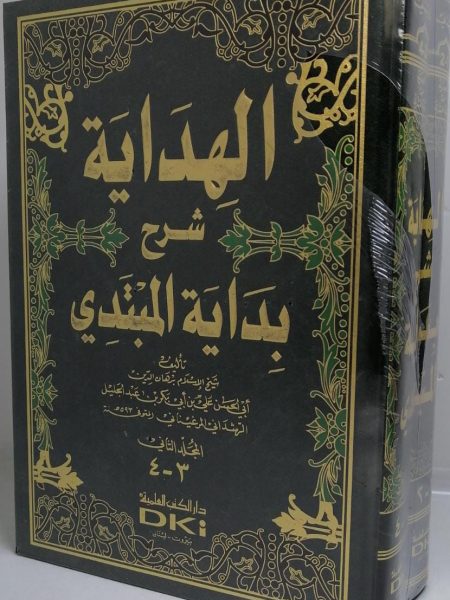 الهِدَاية
شرح
بِدَاية المُبْتَدِي
تأليف
شيخ الإسلام برهان الدين
أبي الحسن علي بن أبي بكر بن عبد الجليل
الرشداني المرغيناني المتوفى ٥٩٣هـ
المجلد الثاني
٣-٤
دار الكتب العلمية
DKi
بيروت - لبنان
الهداية
شرح
DKi